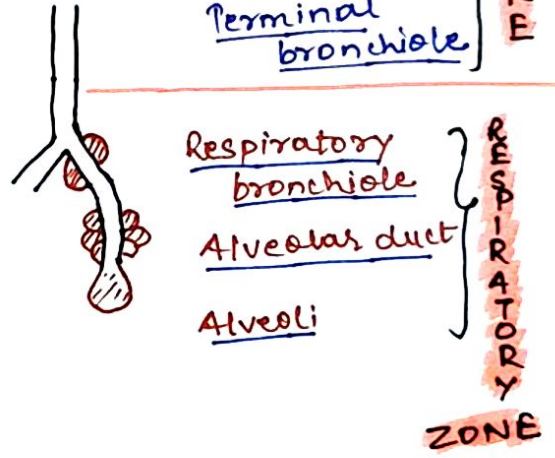 Terminal
bronchiole
E
Respiratory
bronchiole
Alveolar duct
Alveoli
RESPIRATORY
ZONE